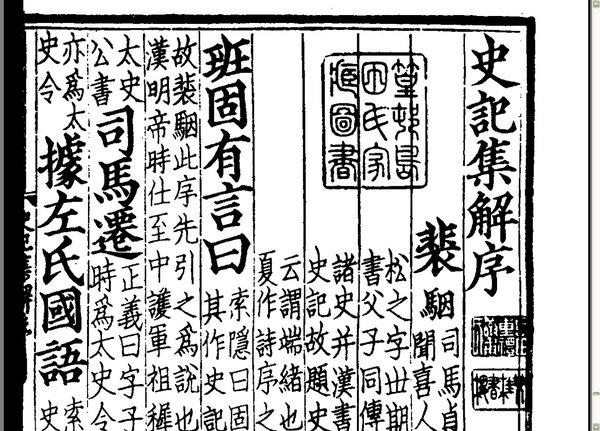 史記集解序
裴駰
司馬貞
聞喜人
松之字丗期
書父子同傳
諸史并漢書
史記故題史
云謂端緒也
夏作詩序之
班固有言曰
索隱曰固
其作史記
故裴駰此序先引之爲說也
漢明帝時仕至中護軍祖穉
太史
公書
司馬遷
正義曰字子
時爲太史令
亦爲太
史令
據左氏國語
索
史
篁村島
田氏家
藏圖書